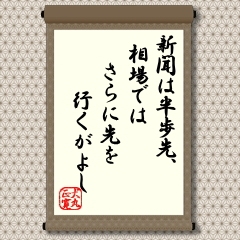 新聞は半歩先、
相場では
さらに先を
行くがよし